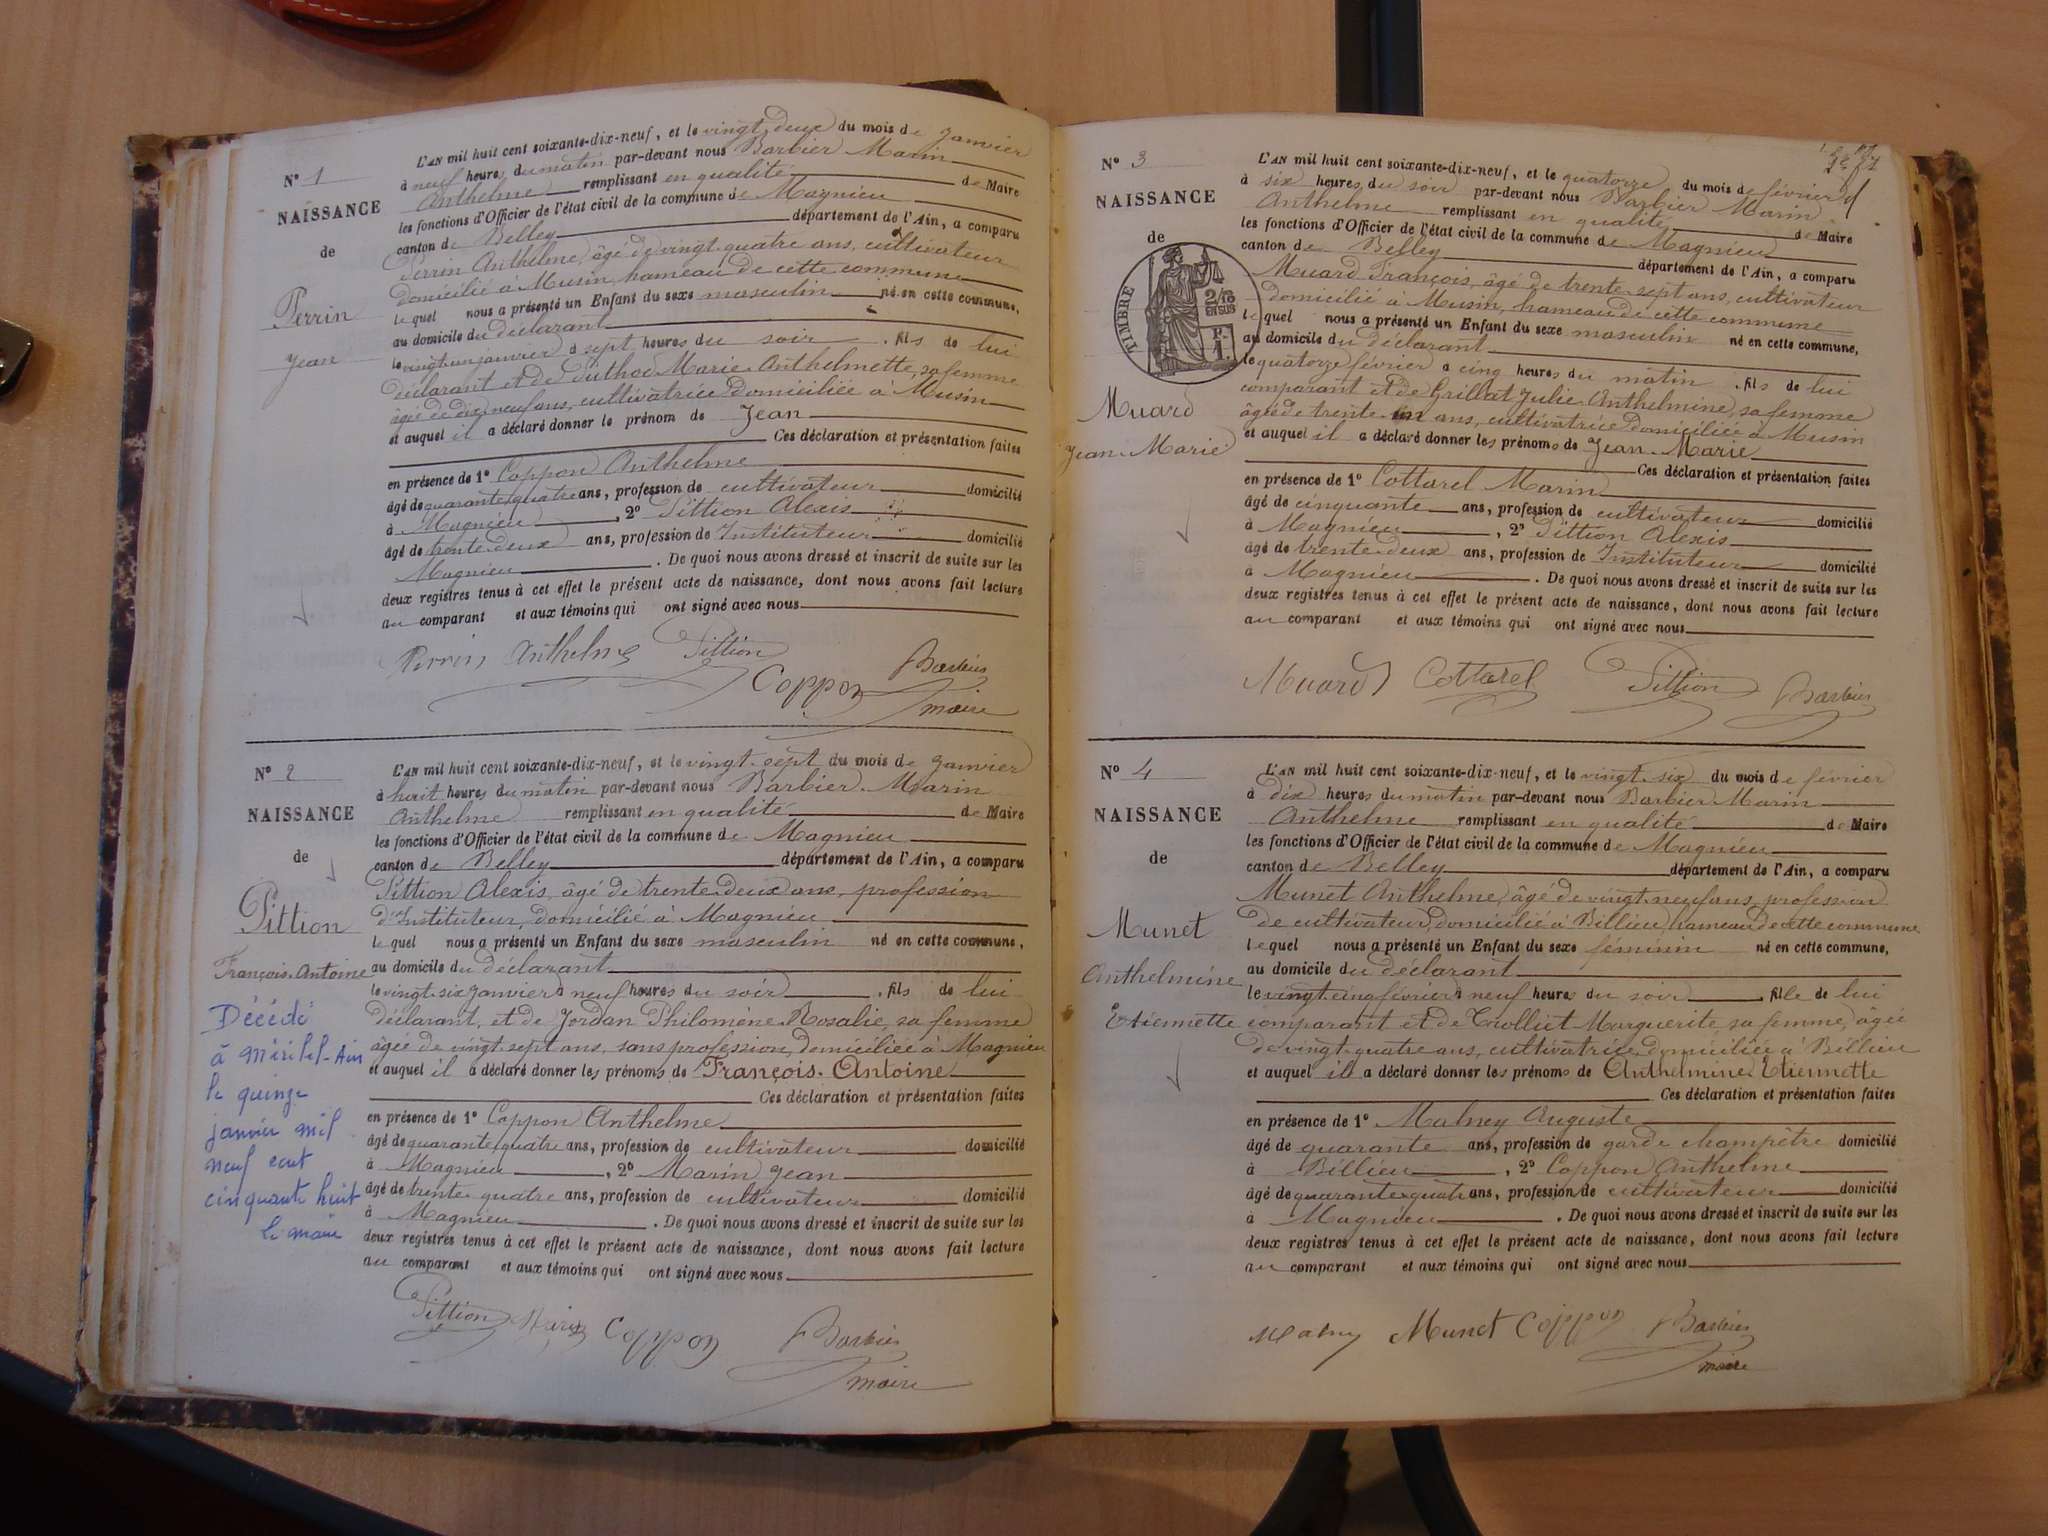 N° 1
NAISSANCE
de
Perrin
Jean
L'AN mil huit cent soixante-dix-neuf, et le vingt-deux du mois de janvier
à neuf heures du matin par-devant nous Barbier Marin
Anthelme remplissant en qualité de Maire
les fonctions d'Officier de l'état civil de la commune de Magnieu
canton de Belley département de l'Ain, a comparu
Perrin Anthelme, âgé de vingt-quatre ans, cultivateur
domicilié à Musin, hameau de cette commune
lequel nous a présenté un Enfant du sexe masculin né en cette commune,
au domicile du déclarant
le vingt-un janvier à sept heures du soir, fils de lui
déclarant et de Marie Anthelmette, sa femme
âgée de dix-neuf ans, cultivatrice domiciliée à Musin
et auquel il a déclaré donner le prénom de Jean
Ces déclaration et présentation faites
en présence de 1° Coppon Anthelme
âgé de quarante-quatre ans, profession de cultivateur domicilié
à Magnieu, 2° Pittion Alexis
âgé de trente-deux ans, profession de Instituteur domicilié
Magnieu. De quoi nous avons dressé et inscrit de suite sur les
deux registres tenus à cet effet le présent acte de naissance, dont nous avons fait lecture
au comparant et aux témoins qui ont signé avec nous
Perrin Anthelme Pittion
Coppon Barbier
maire
N° 2
NAISSANCE
de
Pittion
François-Antoine
Décédé
à Miribel-Ain
le quinze
janvier mil
neuf cent
cinquante huit
le maire
L'AN mil huit cent soixante-dix-neuf, et le vingt-sept du mois de janvier
à huit heures du matin par-devant nous Barbier Marin
Anthelme remplissant en qualité de Maire
les fonctions d'Officier de l'état civil de la commune de Magnieu
canton de Belley département de l'Ain, a comparu
Pittion Alexis, âgé de trente-deux ans, profession
d'Instituteur, domicilié à Magnieu
lequel nous a présenté un Enfant du sexe masculin né en cette commune,
au domicile du déclarant
le vingt-six janvier à neuf heures du soir, fils de lui
déclarant, et de Jordan Philomène Rosalie, sa femme
âgée de vingt-sept ans, sans profession, domiciliée à Magnieu
et auquel il a déclaré donner les prénoms de François-Antoine
Ces déclaration et présentation faites
en présence de 1° Coppon Anthelme
âgé de quarante-quatre ans, profession de cultivateur domicilié
à Magnieu, 2° Marin Jean
âgé de trente-quatre ans, profession de cultivateur domicilié
à Magnieu. De quoi nous avons dressé et inscrit de suite sur les
deux registres tenus à cet effet le présent acte de naissance, dont nous avons fait lecture
au comparant et aux témoins qui ont signé avec nous
Pittion Marin Coppon Barbier
maire
N° 3
NAISSANCE
de
TIMBRE
2/10
EN SUS
Muard
Jean-Marie
L'AN mil huit cent soixante-dix-neuf, et le quatorze du mois de février
à six heures du soir par-devant nous Barbier Marin
Anthelme remplissant en qualité de Maire
les fonctions d'Officier de l'état civil de la commune de Magnieu
canton de Belley département de l'Ain, a comparu
Muard François, âgé de trente-sept ans, cultivateur
domicilié à Musin, hameau de cette commune
lequel nous a présenté un Enfant du sexe masculin né en cette commune,
au domicile du déclarant
le quatorze février à cinq heures du matin, fils de lui
comparant et de Grillat Julie Anthelmine, sa femme
âgée de trente-un ans, cultivatrice domiciliée à Musin
et auquel il a déclaré donner les prénoms de Jean-Marie
Ces déclaration et présentation faites
en présence de 1° Cottarel Marin
âgé de cinquante ans, profession de cultivateur domicilié
à Magnieu, 2° Pittion Alexis
âgé de trente-deux ans, profession de Instituteur domicilié
à Magnieu. De quoi nous avons dressé et inscrit de suite sur les
deux registres tenus à cet effet le présent acte de naissance, dont nous avons fait lecture
au comparant et aux témoins qui ont signé avec nous
Muard Cottarel Pittion Barbier
N° 4
NAISSANCE
de
Munet
Anthelmine
Etiennette
L'AN mil huit cent soixante-dix-neuf, et le vingt-six du mois de février
à dix heures du matin par-devant nous Barbier Marin
Anthelme remplissant en qualité de Maire
les fonctions d'Officier de l'état civil de la commune de Magnieu
canton de Belley département de l'Ain, a comparu
Munet Anthelme, âgé de vingt-neuf ans, profession
de cultivateur, domicilié à Billieu, hameau de cette commune
lequel nous a présenté un Enfant du sexe féminin né en cette commune,
au domicile du déclarant
le vingt-cinq février à neuf heures du soir, fille de lui
comparant et de Trolliet Marguerite, sa femme, âgée
de vingt-quatre ans, cultivatrice domiciliée à Billieu
et auquel il a déclaré donner les prénoms de Anthelmine Etiennette
Ces déclaration et présentation faites
en présence de 1° Malney Auguste
âgé de quarante ans, profession de garde champêtre domicilié
à Billieu, 2° Coppon Anthelme
âgé de quarante-quatre ans, profession de cultivateur domicilié
à Magnieu. De quoi nous avons dressé et inscrit de suite sur les
deux registres tenus à cet effet le présent acte de naissance, dont nous avons fait lecture
au comparant et aux témoins qui ont signé avec nous
Malney Munet Coppon Barbier
maire